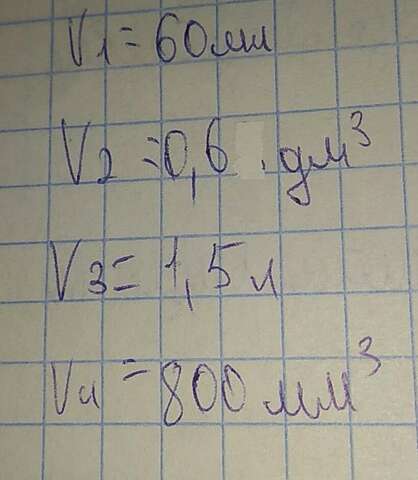 V1 = 60 мл
V2 = 0,6 . дм³
V3 = 1,5 л
V4 = 800 мм³